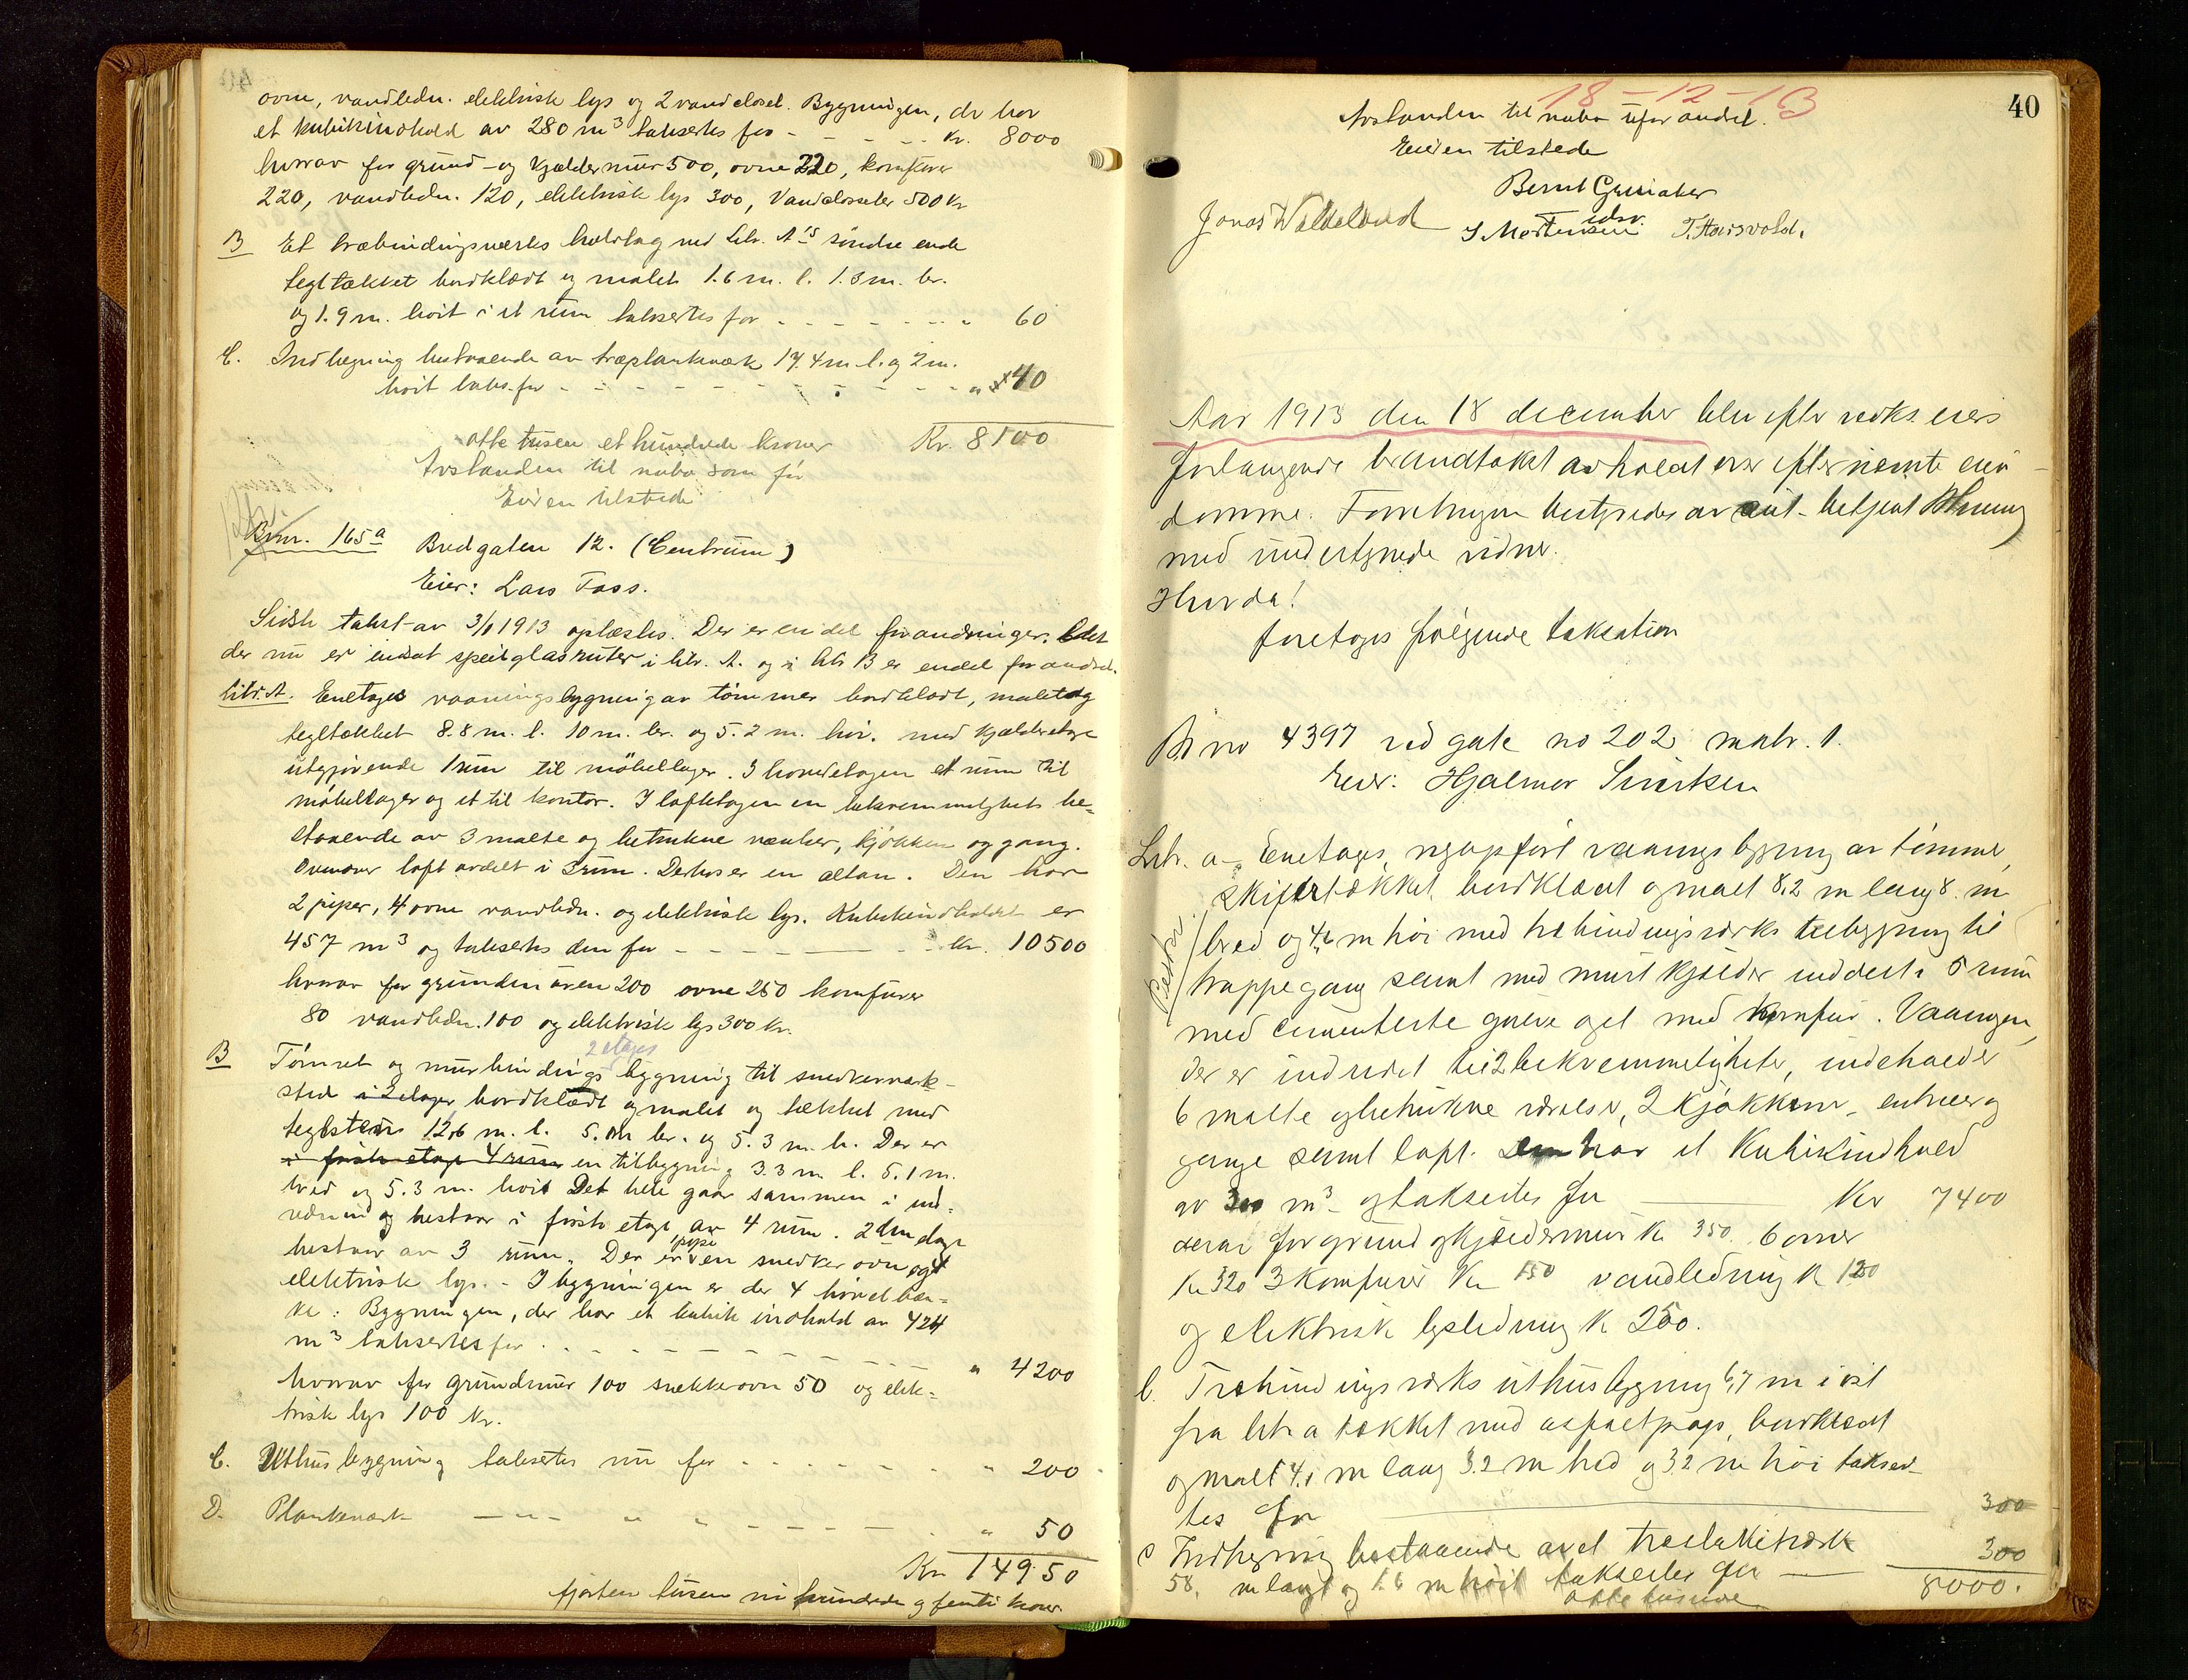 ovne, vandledn. elektrisk lys og 2 vandcloset. Bygningen, der har
et kubikindhold av 280 m³ taksertes for - - - - kr. 8000
hvorav for grund- og kjældermur 500, ovne 220, komfurer
220, vandledn. 120, elektrisk lys 300, Vandclosseter 500 kr
B Et træbindingsverks halvtag ved Litr. A's søndre ende
tegltækket bordklædt og malet 1.6 m. l. 1.3 m. br.
og 1.9 m. høit i et rum taksertes for - - - - - - " 60
C. Indhegning bestaaende av træplankeverk 17.4 m. l. og 2 m.
høit taks. for - - - - - - - - - - " 40
otte tusen et hundrede kroner Kr. 8100
Avstanden til nabo som før
Eieren tilstede
Br.nr. 165a Bredgaten 12. (Centrum)
Eier: Lars Foss.
Sidste takst av 3/1 1913 oplæstes. Der er en del forandringer. Idet
der nu er indsat speilglasruter i litr. A. og i litr B er endel forandret.
Litr. A. Enetages vaaningsbygning av tømmer bordklædt, malet og
tegltækket 8.8 m. l. 10 m. br. og 5.2 m. høi. med kjælderetage
utgjørende 1 rum til møbellager. I hovedetagen et rum til
møbellager og et til kontor. I loftetagen en bekvemmelighet be-
staaende av 3 malte og betrukne værelser, kjøkken og gang.
Ovenover loft avdelt i 3 rum. Derhos er en altan. Den har
2 piper, 4 ovne vandledn. og elektrisk lys. Kubikindholdet er
457 m³ og taksertes den for - - - - - - kr. 10500
hvorav for grundmuren 200 ovne 250 komfurer
80 vandledn. 100 og elektrisk lys 300 kr.
2 etages
B Tømret og murbindings bygning til snedkerverk-
sted i 2 etager bordklædt og malet og tækket med
teglsten 12,6 m. l. 5. m br. og 5.3 m. h. Der er
i første etage 4 rum en tilbygning 3.3 m l. 5.1 m.
bred og 5.3 m. høit Det hele gaar sammen i ind-
redning og bestaar i første etage av 4 rum. 2den etage
bestaar av 3 rum. Der er pipe en snedkerovn og
elektrisk lys. - I bygningen er der 4 høvelbæn-
ke: Bygningen, der har et kubik indhold av 424
m³ taksertes for . . - - - - - - - - " 4200
hvorav for grundmur 100 snekkerovn 50 og elek-
trisk lys 100 kr.
C. Uthusbygning taksertes nu for - - - - - - " 200
D. Plankeverk - " - " " - - - - - " 50
Kr. 14950
fjorten tusen ni hundrede og femti kroner.
40
18-12-13
Avstanden til nabo uforandret.
Eieren tilstede
Bernt Gruiaker
edsv.
Jonas Waldeland S. Mortensen T. Haisvold.
Aar 1913 den 18 december blev efter vedk. eiers
forlangende brandtakst avholdt over efternevnte eien-
domme. Forretningen bestyredes av amt. betjent
med undertegnede vidner.
Hvorda!
foretoges følgende taksation
Br no 4397 ved gate no 202 matr. 1.
Eier: Hjalmar Sivertsen
Litr. a - Enetages, nyopført vaaningsbygning av tømmer,
skifertækket, bordklædt og malt 8,2 m lang 8. m
bred og 4,6 m høi med træbindingsverks tilbygning til
trappegang samt med muret kjælder inddelt i 5 rum
med cementerte gulve og et med komfur. Vaaningen,
der er indredet til 2 bekvemmeligheter, indeholder
6 malte og betrukne værelser, 2 kjøkkener, entreer og
gange samt loft. Den har et kubikindhold
av 300 m³ og taksertes for ——— Kr 7400
derav for grund og kjældermur kr 350. 6 ovner
kr 320 3 komfurer kr 150 vandledning k 120
og elektrisk lysledning k 250.
b. Træbindingsverks uthusbygning 6,7 m i øst
fra litr a tækket med asfaltpap, bordklædt
og malt 4,1 m lang 3.2 m bred og 3.2 m høi takser-
tes for ——— 300
c Indhegning bestaaende av et træstakitverk
58, m langt og 1.6 m høit taksertes for —— 300
8000.
otte tusen